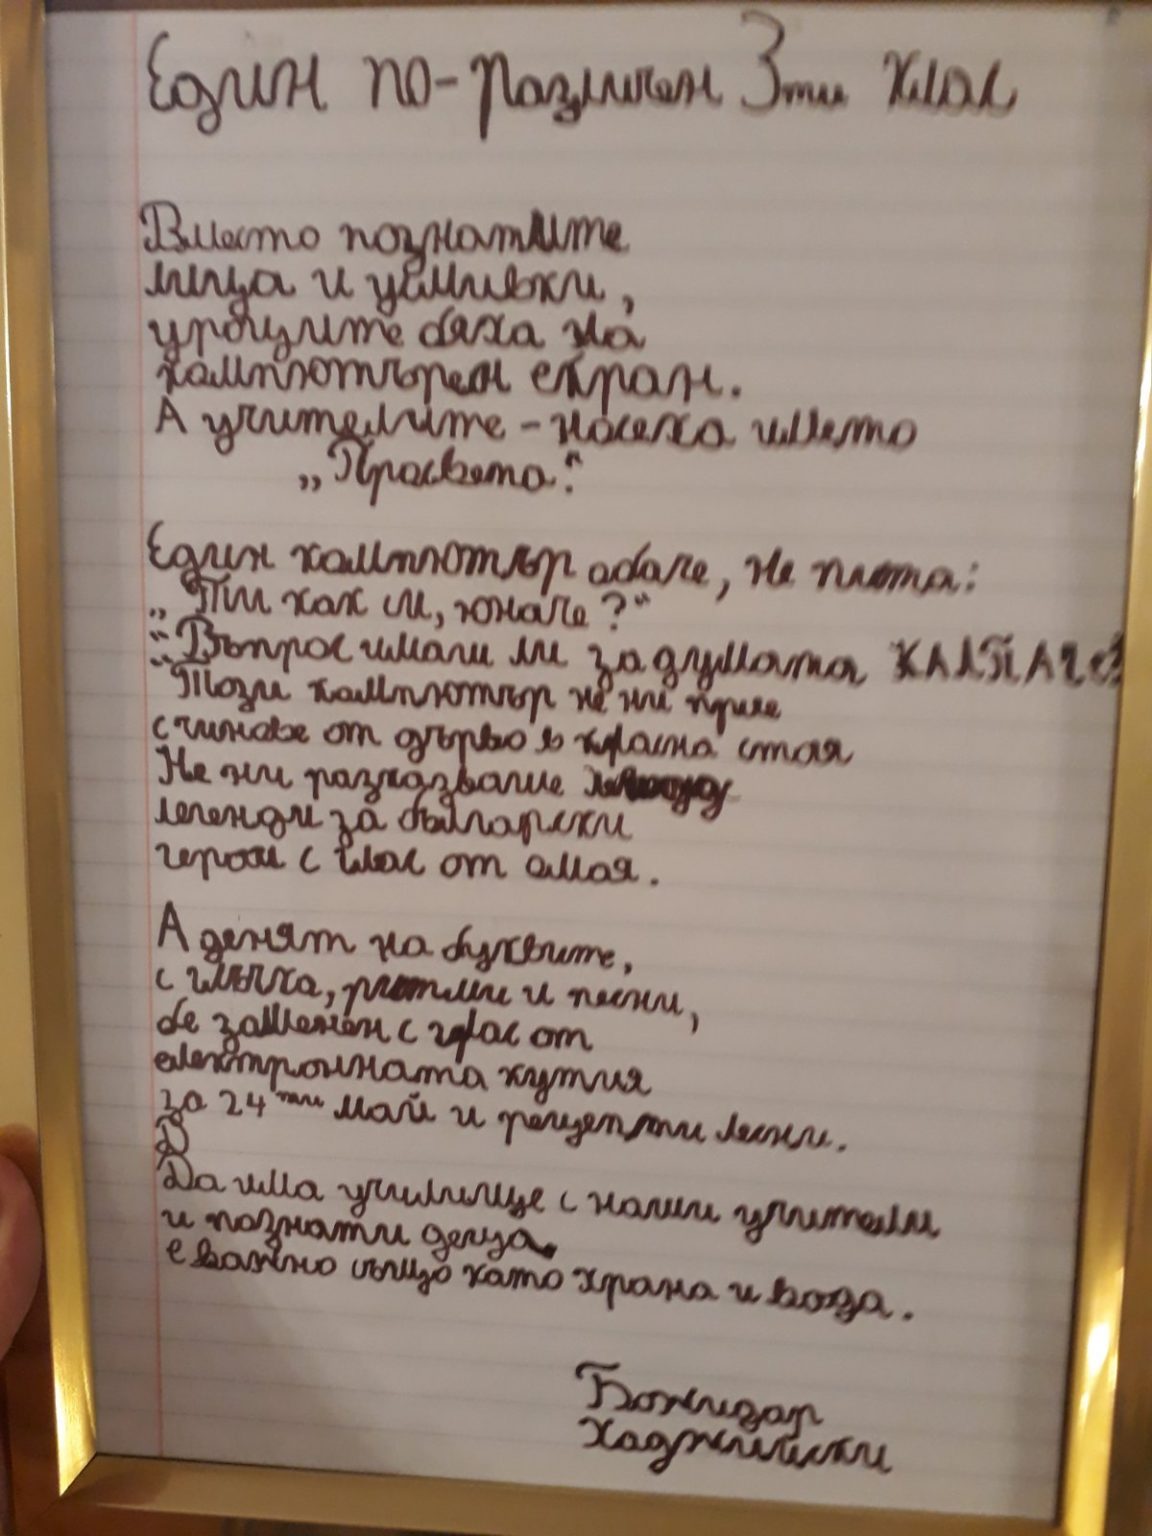 Един по-различен 3ти клас
Вместо познатите
лица и усмивки,
уроците бяха на
компютърен екран.
А учителите - носеха името
„Просвета".
Един компютър обаче, не пита:
„Ти как си, юначе?"
"Въпрос имали ли за думата КАЛПАЧе?
"Този компютър не ни прие
с чинове от дърво в красна стая
Не ни разказваше
легенди за български
герои с глас от омая.
А денят на буквите,
с глъчка, ритми и песни,
бе заменен с глас от
електронната кутия
за 24ти май и рецепти лесни.
Д
Да има училище с наши учители
и познати деца
е важно също като храна и вода.
Божидар
Хаджийски